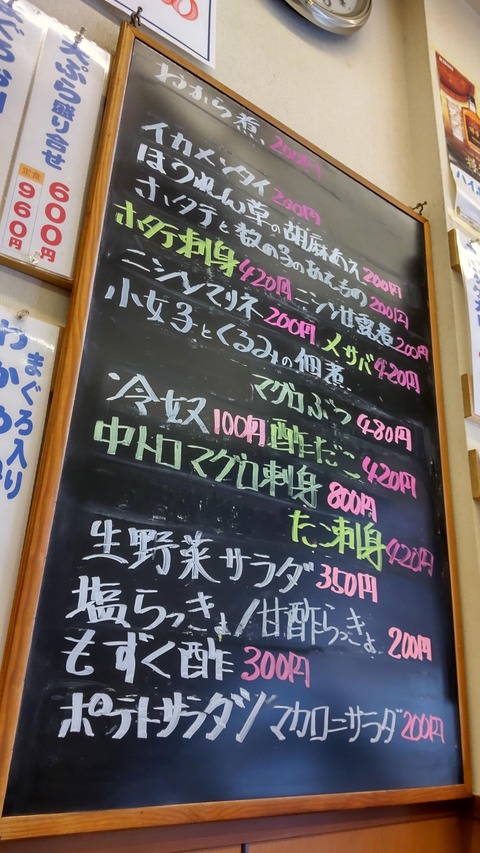 おから煮、200円
イカメンタイ 200円
ほうれん草の胡麻あえ 200円
ホタテと数の子のあえもの 200円
ホタテ刺身 420円 ニシン甘露煮 200円
ニシンマリネ 200円 〆サバ 420円
小女子とくるみの佃煮
マグロぶつ 480円
冷奴 100円 酢だこ 420円
中トロマグロ刺身 800円
たこ刺身 420円
生野菜サラダ 350円
塩らっきょ/甘酢らっきょ 200円
もずく酢 300円
ポテトサラダ/マカロニサラダ 200円
天ぷら盛り合せ 600円
定食 960円
まぐろ入り